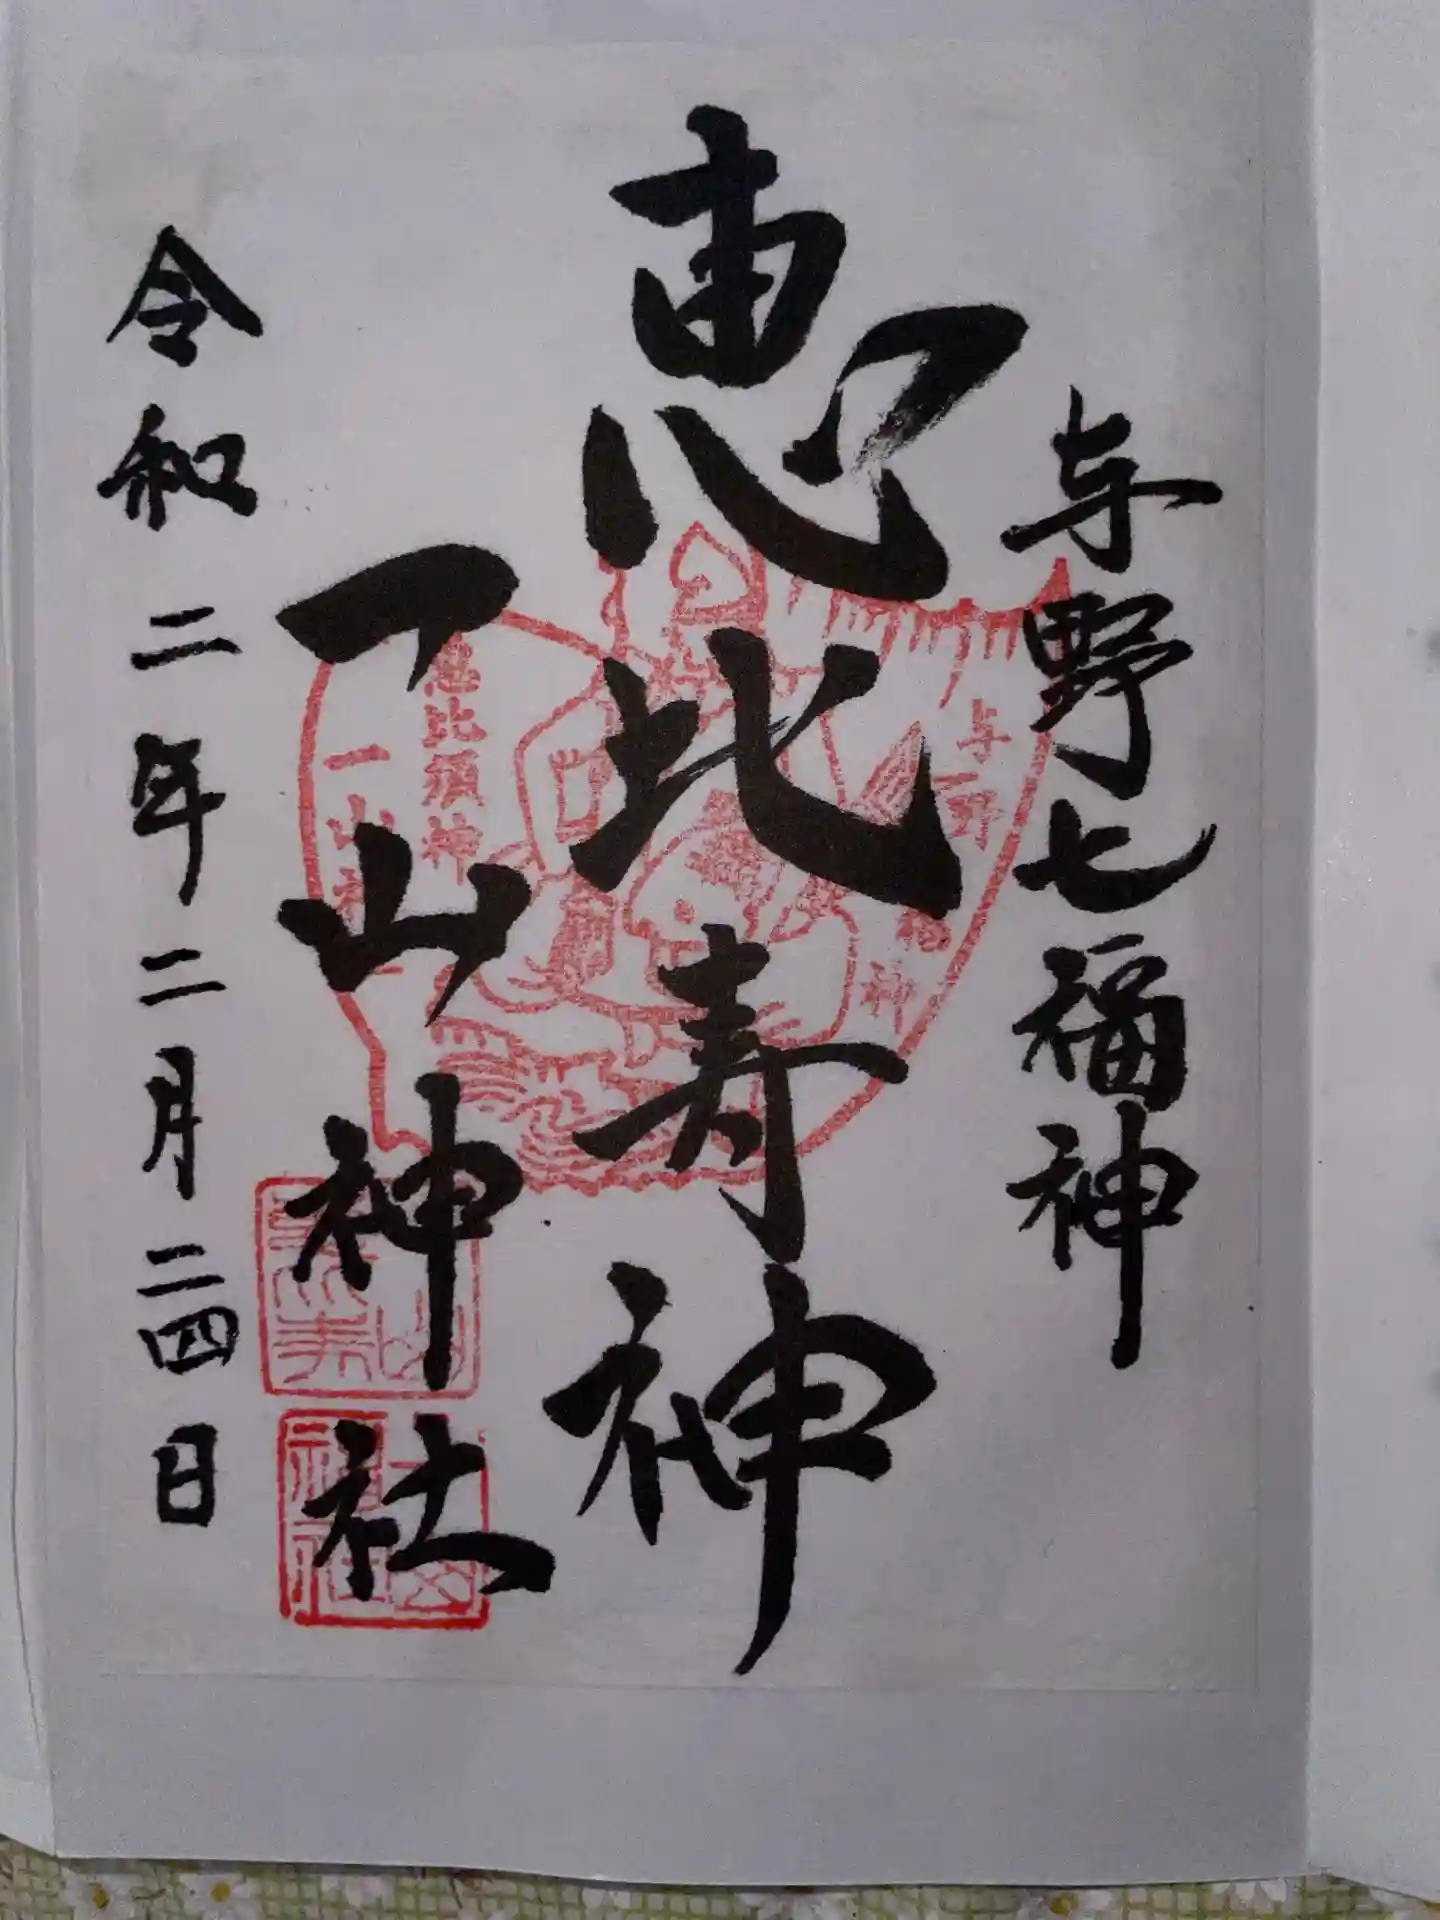 与野七福神
恵比寿神
一山神社
令和二年二月二四日
与野七福神
恵比須神
一山神社